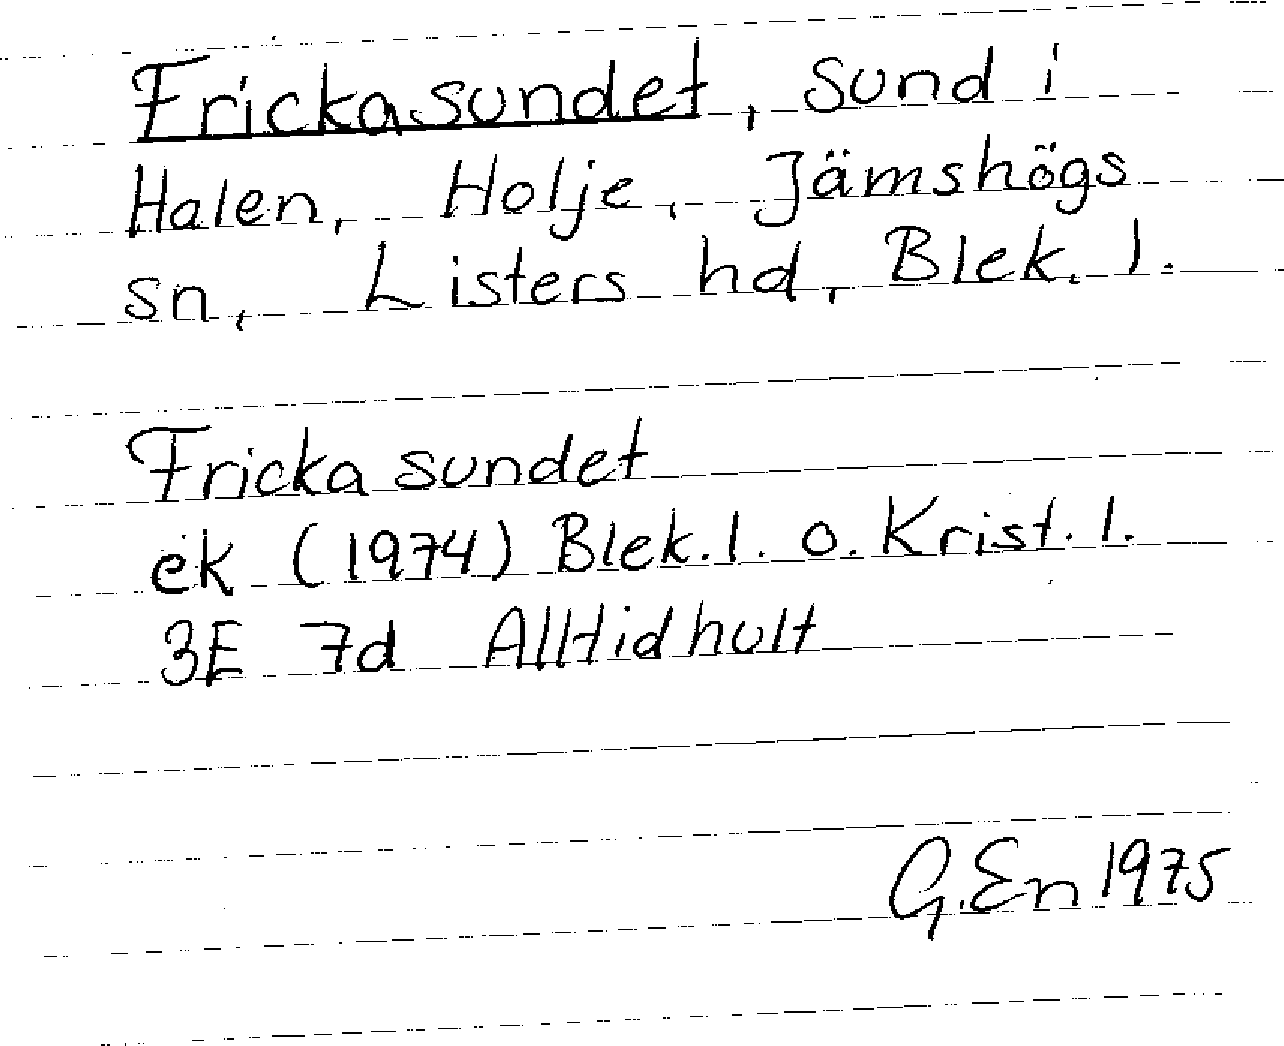 Frickasundet, sund i
Halen, Holje, Jämshögs
sn, Listers hd, Blek. l.
Frickasundet
ek (1974) Blek. l. o. Krist. l.
3E 7d Alltidhult
G. En 1975